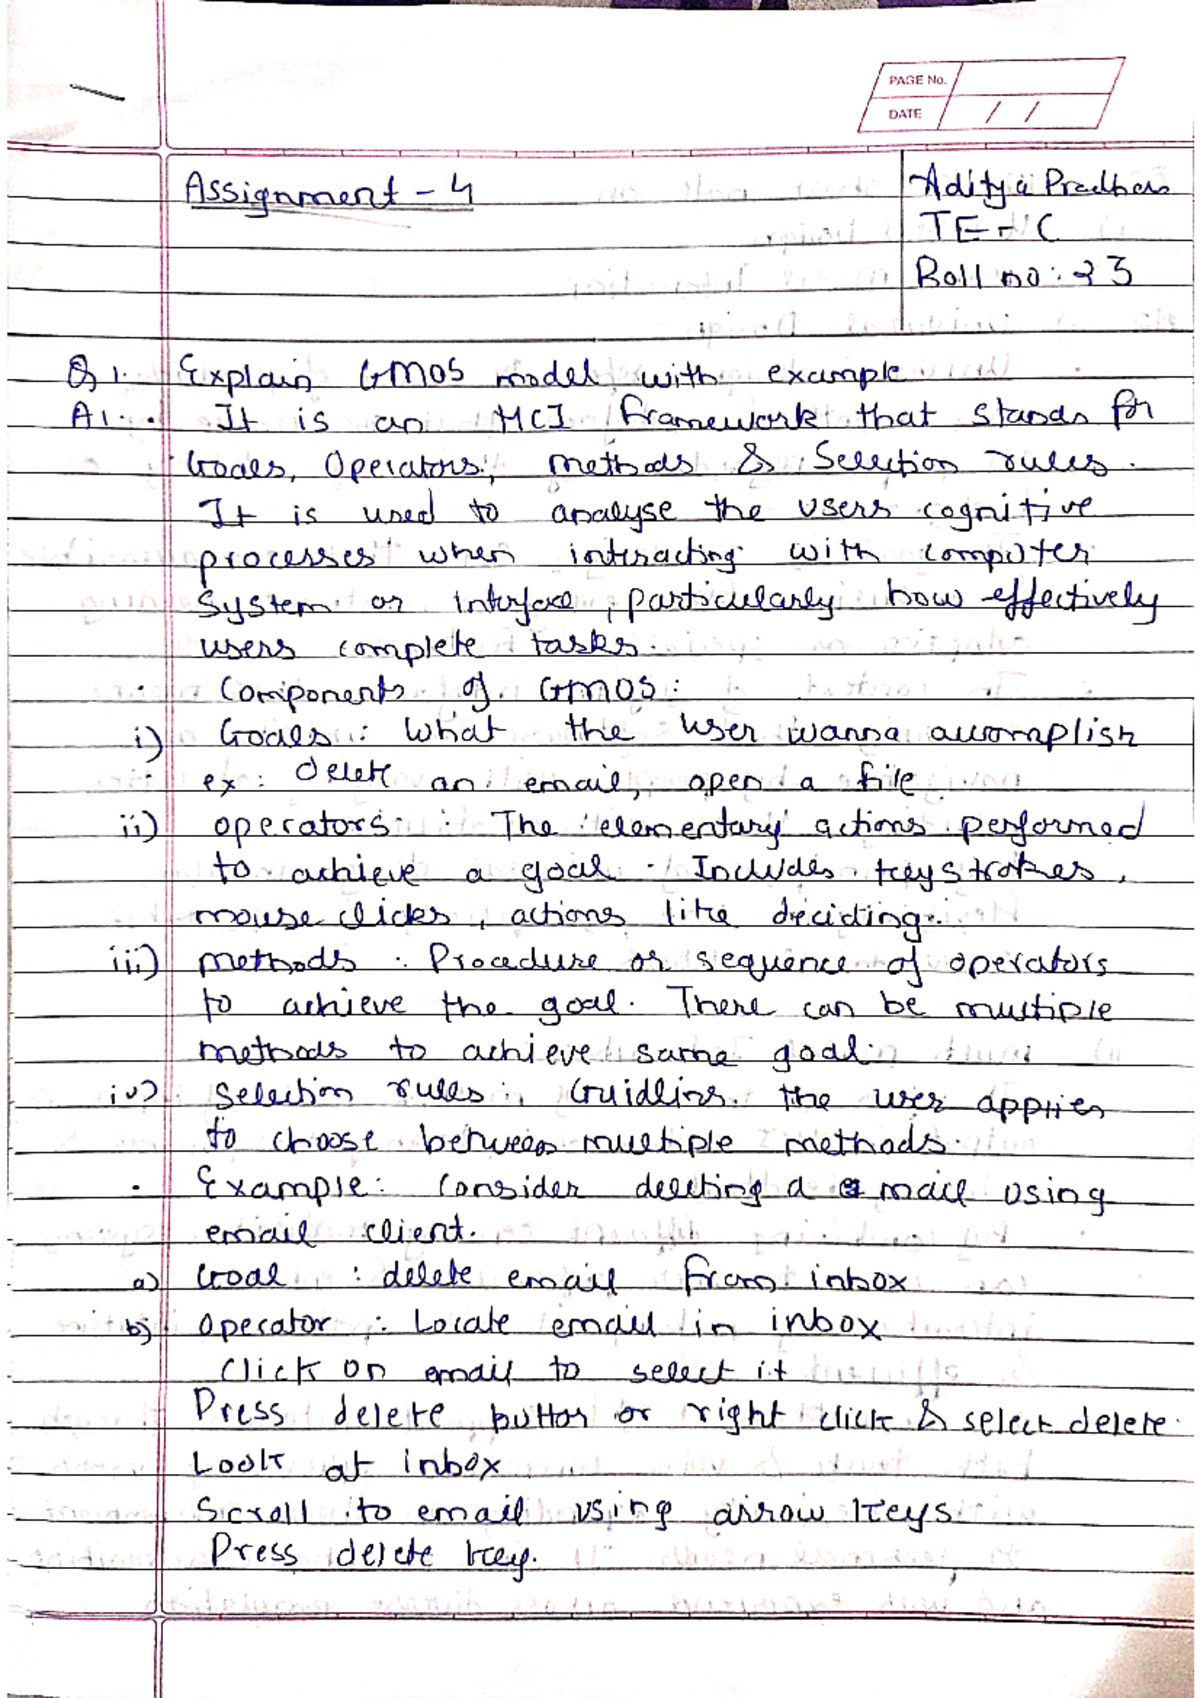 PAGE No.
DATE / /
Assignment - 4
Aditya Pradhan
TE - C
Roll no: 23
Q1. Explain GMOS model with example
A1. It is an HCI framework that stands for
Goals, Operators, methods & Selection rules.
It is used to analyse the users cognitive
processes when interacting with computer
system or interface, particularly how effectively
users complete tasks.
Components of GMOS:
i) Goals: What the user wanna accomplish
ex: delete an email, open a file
ii) operators: The elementary actions performed
to achieve a goal. Includes keystrokes,
mouse clicks, actions like deciding.
iii) methods: Procedure or sequence of operators
to achieve the goal. There can be multiple
methods to achieve same goal.
iv) Selection rules: Guidlins the user applies
to choose between multiple methods.
Example: Consider deleting a mail using
email client.
a) Goal : delete email from inbox
b) Operator : Locate email in inbox
Click on email to select it
Press delete button or right click & select delete.
Look at inbox
Scroll to email using arrow keys
Press delete key.